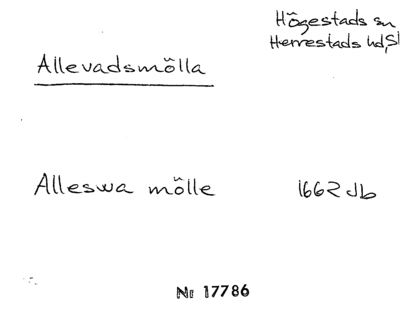 Högestads sn
Herrestads hd, Sk
Allevadsmölla
Alleswa mölle 1662 Jb
Nr 17786